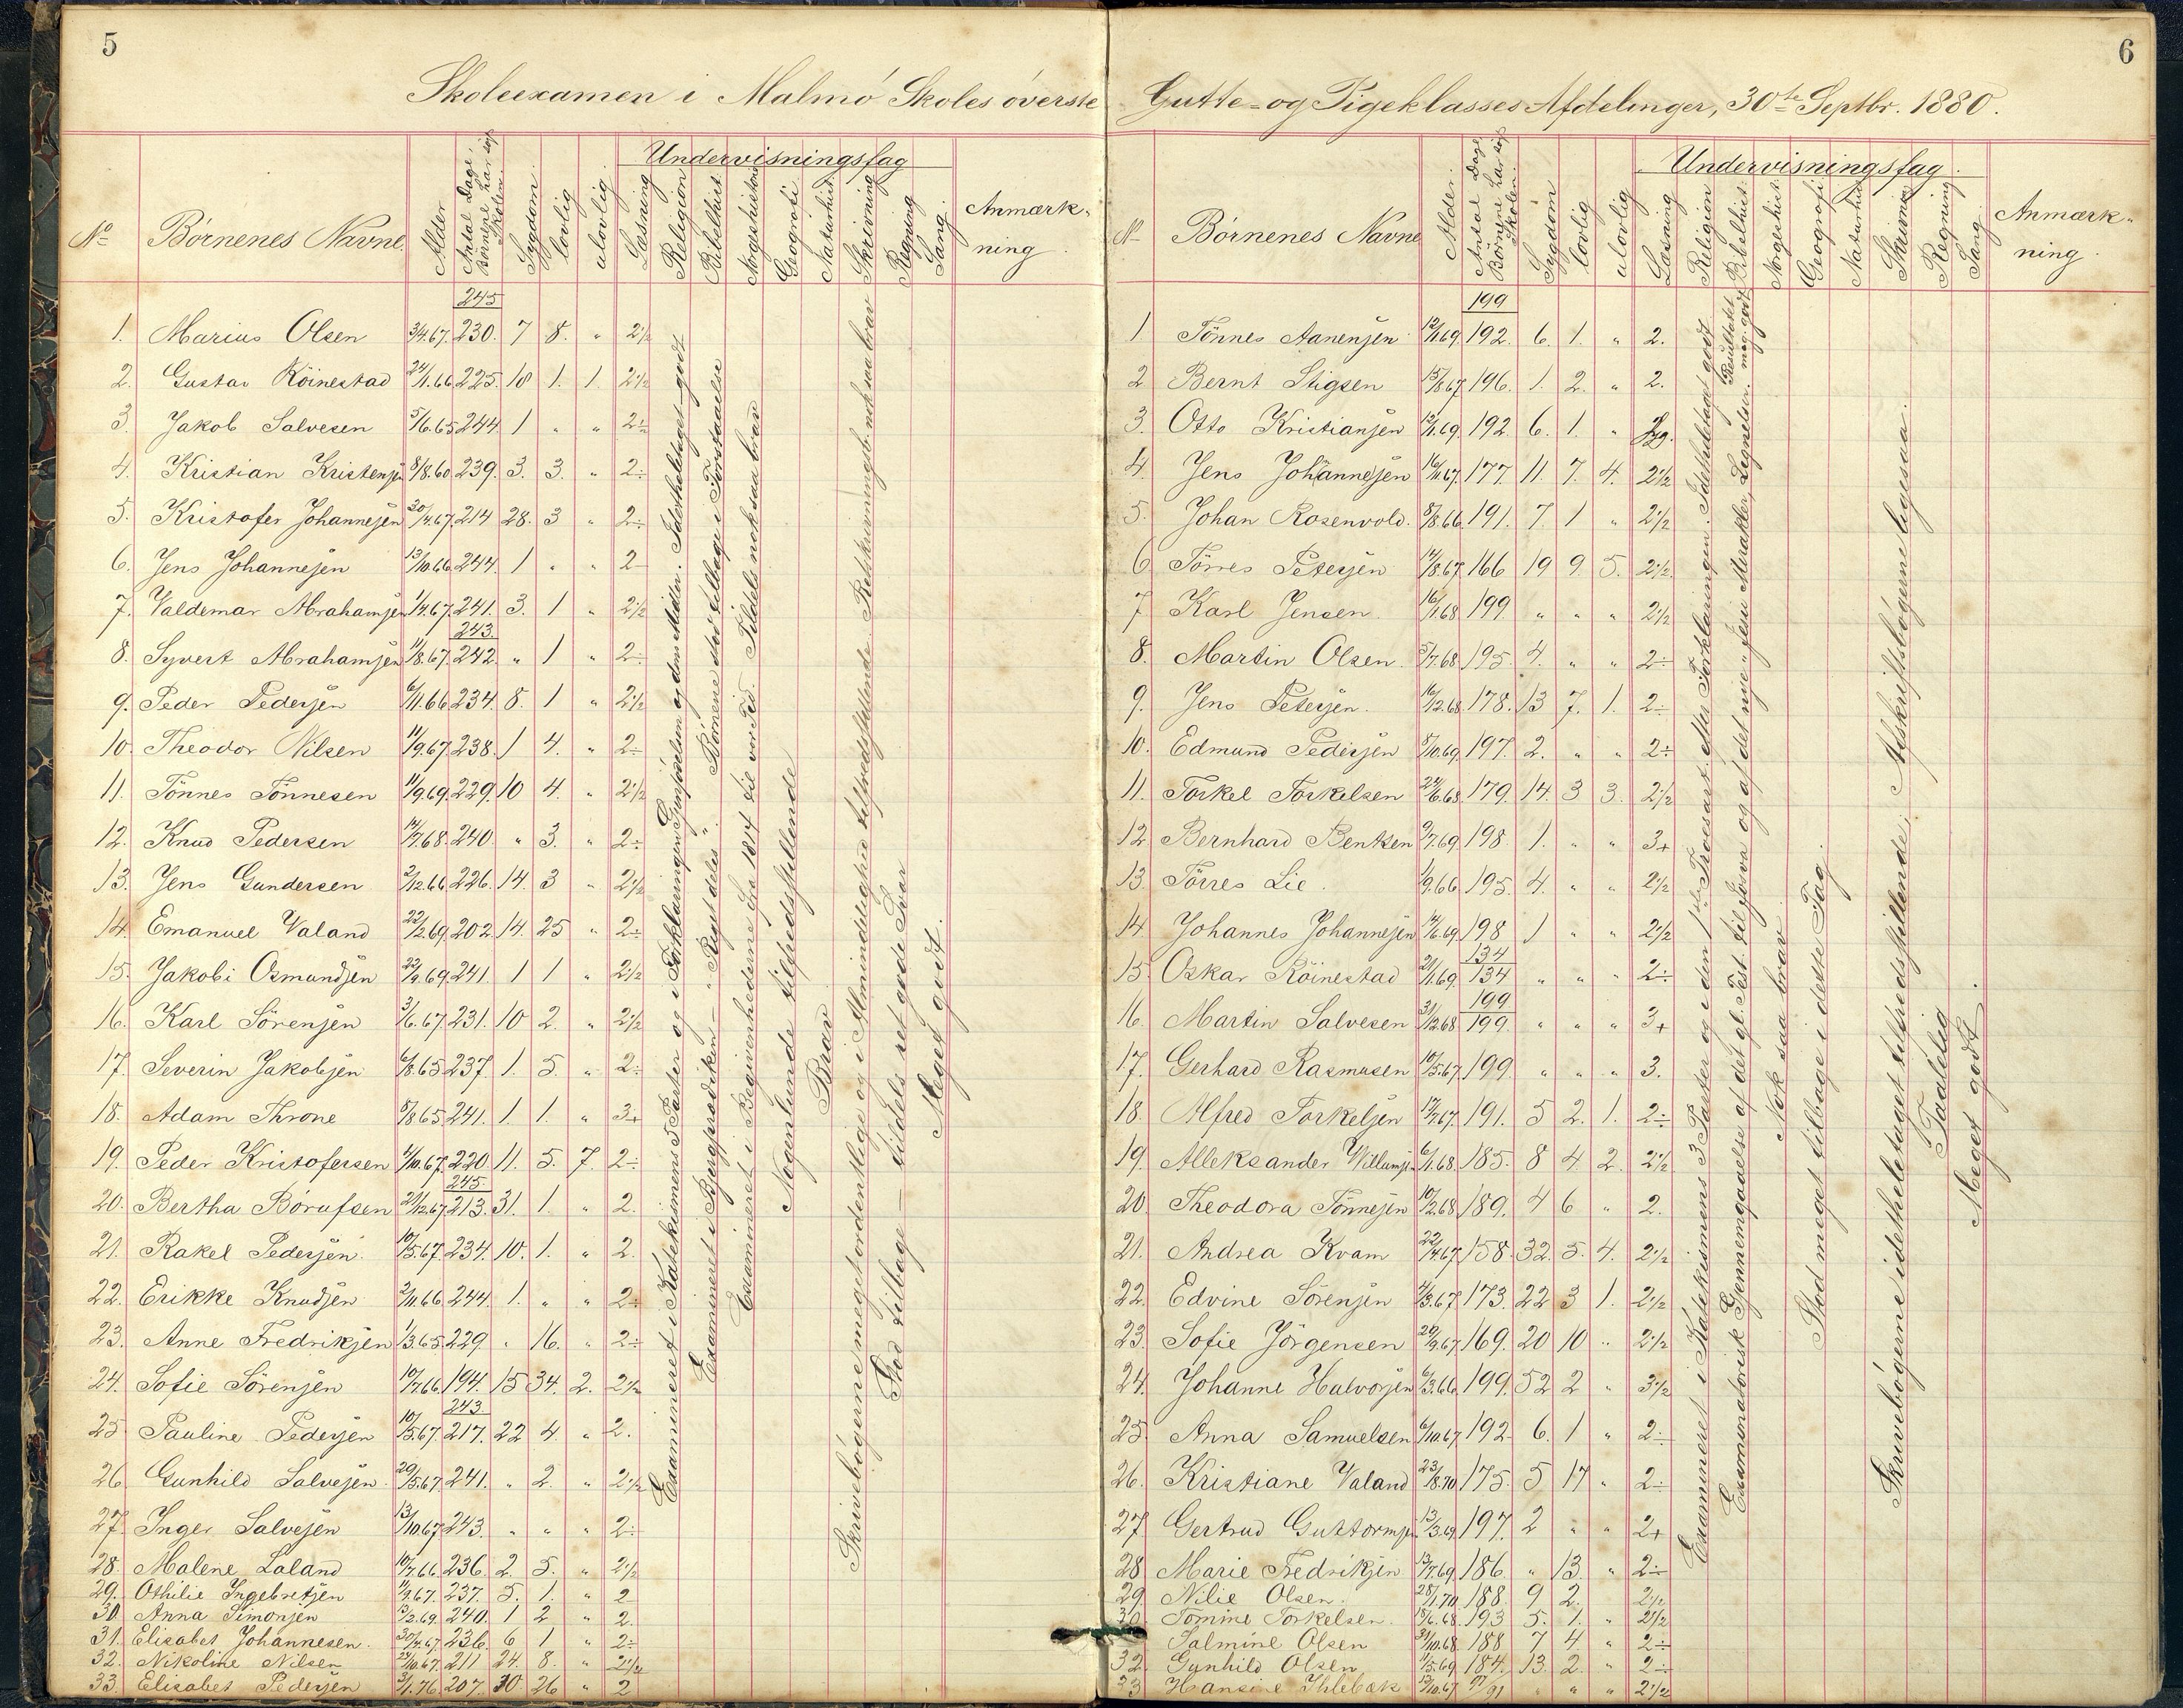 5
Skoleexamen i Malmö Skoles överste
Undervisningsfag
No Börnenes Navne. Alder Antal Dage, Börnene har sögt Skolen. Sygdom lovlig ulovlig Læsning Religion Bibelhist. Norgeshistorie Geografi Naturhist. Skrivning Regning Sang. Anmærkning.
245
1. Marius Olsen 3/4.67. 230. 7 8. " 2 1/2
2. Gustav Röinestad 24/1.66 225. 18 1. 1 2 1/2
3. Jakob Salvesen 5/6.65 244 1 " " 2÷
4. Kristian Kristensen 8/8.60 239. 3. 3. " 2÷
5. Kristofer Johannesen 30/4.67. 214 28. 3 " 2÷
6. Jens Johannesen 13/10.66. 244. 1 " " 2
7. Valdemar Abrahamsen 1/4.67. 241. 3. 1 " 2 1/2
243.
8. Syvert Abrahamsen 11/8.67. 242. " 1 " 2÷
9. Peder Pedersen 6/11.66 234. 8. 1 " 2 1/2
10. Theodor Nilsen 11/9.67. 238. 1 4. " 2÷
11. Tönnes Tönnesen 11/9.69. 229. 10 4. " 2 1/2
12. Knud Pedersen 14/7.68. 240. " 3. " 2÷
13. Jens Gundersen 2/12.66. 226. 14. 3 " 2 1/2
14. Emanuel Valand 22/2.69. 202. 14. 25 " 2÷
15. Jakobi Osmundsen 22/9.69. 241. 1 1 " 2 1/2
16. Karl Sörensen 3/6.67. 231. 10 2. " 2 1/2
17. Severin Jakobsen 6/8.65 237. 1. 5. " 2÷
18. Adam Throne 8/8.65. 241. 1. 1. " 3+
19. Peder Kristofersen 4/10.67. 220. 11. 5. 7. 2÷
245
20. Bertha Börufsen 24/12.67. 213. 31. 1. " 2.
21. Rakel Pedersen. 10/5.67. 234. 10. 1. " 2.
22. Erikke Knudsen 2/11.66 244. 1. " " 2÷
23. Anne Fredriksen 1/3.65. 229. " 16. " 2÷
24. Sofie Sörensen 10/7.66. 194. 15 34. 2. 2 1/2
243.
25 Pauline Pedersen 10/5.67. 217. 22 4. " 2.
26 Gunhild Salvesen. 29/5.67. 241. " 2. " 2 1/2
27. Inger Salvesen 13/10.67. 243. " " " 2÷
28. Malene Laland 10/7.66. 236. 2. 5. " 2 1/2
29. Othilie Ingebretsen 11/9.67. 237. 5. 1. " 2
30. Anna Simonsen 13/2.69. 240. 1 2 " 2.
31. Elisabet Johannesen. 30/4.67. 236. 6 1 " 2÷
32. Nikoline Nilsen 23/10.67. 211 24. 8. " 2 1/2
33. Elisabet Pedersen 3/1.76. 207. 30 26 " 2
Examineret i Katekismens 5 Parter og i Forklaringen. Idetheletaget godt.
Examineret i Bjergprædiken Börnene stod tilbage i Forstaaelse
Examineret i Begivenhederne fra 1814 til vor Tid. Tildels nok saa brav
Nogenlunde tilfredsstillende
Brav
Skrivebögerne meget ordentlige og i Almindelighed tilfredsstillende. Retskrivningen nok saa brav
Stod tilbage – tildels ret gode Svar
Meget godt.
6
Gutte- og Pigeklasses Afdelinger, 30te Septbr. 1880.
Undervisningsfag.
No Börnenes Navne Alder. Antal Dage, Börnene har sögt Skolen. Sygdom lovlig ulovlig Læsning Religion Bibelhist. Norgeshist. Geografi. Naturhist. Skrivning Regning Sang. Anmærkning.
199
1 Tönnes Aanensen 12/11.69. 192. 6. 1. " 2.
2 Bernt Stigsen 15/8.67. 196. 1. 2. " 2.
3. Otto Kristiansen 13/1.69. 192. 6. 1. " Syg.
4. Jens Johannesen 16/11.67. 177. 11. 7. 4. 2 1/2
5. Johan Rosenvold. 8/8.66. 191. 7. 1 " 2 1/2
6 Törres Petersen 14/8.67. 166 19 9. 5. 2 1/2
7 Karl Jensen. 16/1.68 199. " " " 2 1/2
8. Martin Olsen. 5/7.68. 195. 4. " " 2÷
9. Jens Petersen. 16/12.68. 178. 13 7. 1. 2÷
10. Edmund Pedersen 8/10.69. 197. 2. " " 2÷
11. Torkel Torkelsen 24/6.68. 179. 14. 3 3. 2 1/2
12 Bernhard Bentsen 9/7.69. 198 1. " " 3+
13. Törres Lie. 1/9.66 195. 4. " " 2 1/2
14 Johannes Johannesen 14/6.69. 198 1 " " 2 1/2
134
15. Oskar Röinestad 21/1.69. 134 " " " 2÷
199
16. Martin Salvesen 31/12.68 199. " " " 3+
17. Gerhard Rasmusen 10/5.67. 199. " " " 3.
18. Alfred Torkelsen 17/7.67. 191. 5 2. 1. 2÷
19. Alleksander Willumsen 6/1.68. 185. 8 4 2. 2 1/2
20 Theodora Tönnesen 10/2.68 189. 4 6 " 2.
21. Andrea Kvam 22/4.67. 158. 32. 5. 4. 2 1/2
22. Edvine Sörensen 4/3.67. 173. 22 3 1. 2 1/2
23. Sofie Jörgensen 20/9.67. 169. 20 10 " 2 1/2
24. Johanne Halvorsen 6/3.66. 199. 52 2 " 3 1/2
25. Anna Samuelsen 6/10.67. 192. 6. 1 " 2÷
26. Kristiane Valand 23/8.70 175. 5 17 " 2÷
27 Gertrud Guttormsen 13/3.69 197. 2 " " 2+
28 Marie Fredriksen 13/7.69 186. " 13. " 2÷
29 Nilie Olsen. 28/1.70. 188. 9 2. " 2 1/2
30. Tomine Torkelsen. 18/6.68. 193 5. 1. " 2 1/2
Salmine Olsen 31/10.68. 188 7 4. " 2÷
32. Gunhild Olsen 11/5.69 184. 13. 2. " 2÷
33 Hansine Ihlebæk 13/10.67. 91/91 " " " 2 1/2
Examineret i Katekismens 3 Parter og i den 1ste Trosart. efter Forklaringen. Idetheletaget godt
Examinatorisk Gjennemgaaelse af det gl. Test. til Josva og af det nye "Jesu Mirakler, Lignelser. Resultatet meg. godt
Nok saa brav
Stod meget tilbage i dette Fag.
Skrivebögerne idetheletaget tilfredsstillende; Afskriftsbögerne ligesaa.
Taalelig
Meget godt.